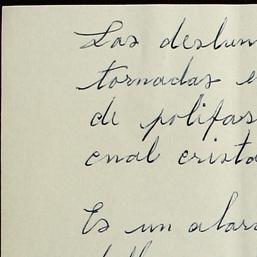 Los deslum
tornadas e
de polifas
cual crista
Es un alar